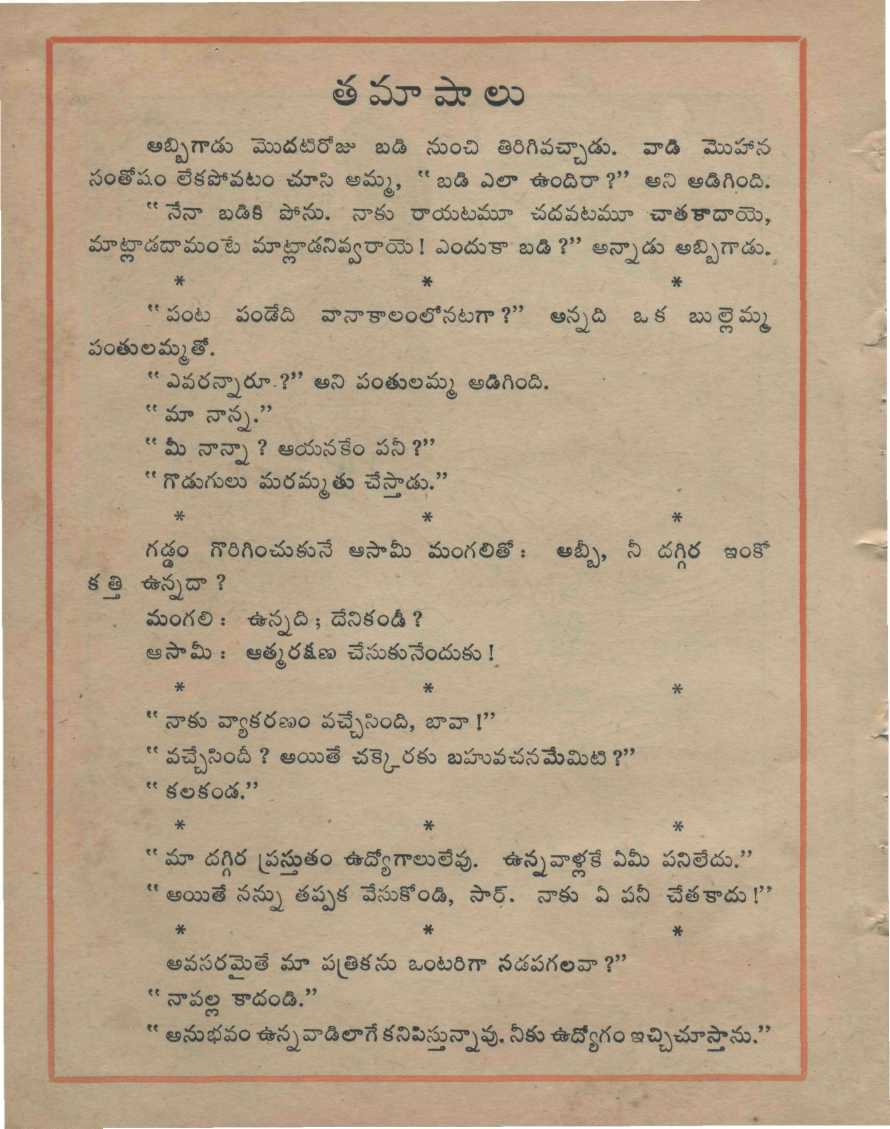 తమాషాలు
అబ్బిగాడు మొదటిరోజు బడి నుంచి తిరిగివచ్చాడు. వాడి మొహాన
సంతోషం లేకపోవటం చూసి అమ్మ, “బడి ఎలా ఉందిరా?” అని అడిగింది.
“నేనా బడికి పోను. నాకు రాయటమూ చదవటమూ చాతకాదాయె,
మాట్లాడదామంటే మాట్లాడనివ్వరాయె! ఎందుకా బడి?” అన్నాడు అబ్బిగాడు.
* * *
“పంట పండేది వానాకాలంలోనటగా?” అన్నది ఒక బుల్లెమ్మ
పంతులమ్మతో.
“ఎవరన్నారూ?” అని పంతులమ్మ అడిగింది.
“మా నాన్న.”
“మీ నాన్నా? ఆయనకేం పనీ?”
“గొడుగులు మరమ్మతు చేస్తాడు.”
* * *
గడ్డం గొరిగించుకునే ఆసామీ మంగలితో: అబ్బీ, నీ దగ్గిర ఇంకో
కత్తి ఉన్నదా?
మంగలి: ఉన్నది; దేనికండీ?
ఆసామీ: ఆత్మరక్షణ చేసుకునేందుకు!
* * *
“నాకు వ్యాకరణం వచ్చేసింది, బావా!”
“వచ్చేసిందీ? అయితే చక్కెరకు బహువచనమేమిటి?”
“కలకండ.”
* * *
“మా దగ్గిర ప్రస్తుతం ఉద్యోగాలులేవు. ఉన్నవాళ్లకే ఏమీ పనిలేదు.”
“అయితే నన్ను తప్పక వేసుకోండి, సార్. నాకు ఏ పనీ చేతకాదు!”
* * *
అవసరమైతే మా పత్రికను ఒంటరిగా నడపగలవా?”
“నావల్ల కాదండి.”
“అనుభవం ఉన్నవాడిలాగే కనిపిస్తున్నావు. నీకు ఉద్యోగం ఇచ్చిచూస్తాను.”